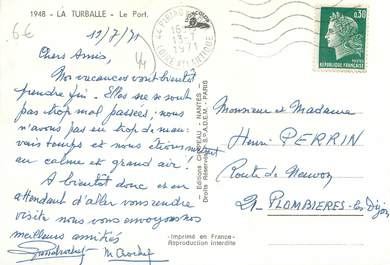 1948 - LA TURBALLE - Le Port.
6€
12/7/71
Chers Amis,
44
Nos vacances vont bientôt
prendre fin. Elles ne se sont
pas trop mal passées, nous
n'avons pas eu trop de mau-
vais temps et nous étions surtout
au calme et grand air!
A bientôt donc et en
attendant d'aller vous rendre
visite nous vous envoyons nos
meilleurs amitiés
M. Crochet
Editions CHAPEAU - NANTES
Droits Réservés - S.P.A.D.E.M. - PARIS
-Imprimé en France-
Reproduction interdite
13-7
1971
LOIRE ATLANTIQUE
0,30
POSTES
REPUBLIQUE FRANÇAISE
Monsieur et Madame
Henri PERRIN
Route de
21- PLOMBIERES-les-Dijon